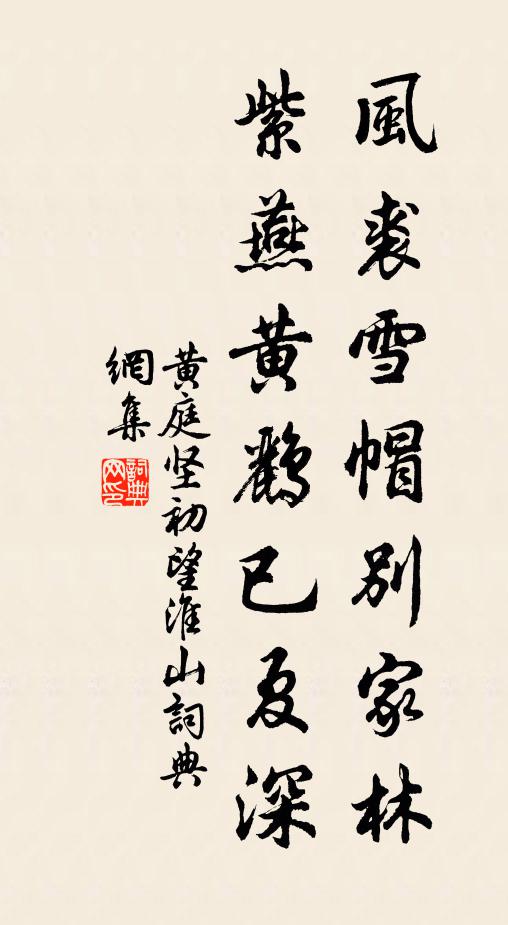 風裘雪帽別家林
紫燕黄鸝已夏深
黄庭坚初望淮山詞典
網集
詞典
网印